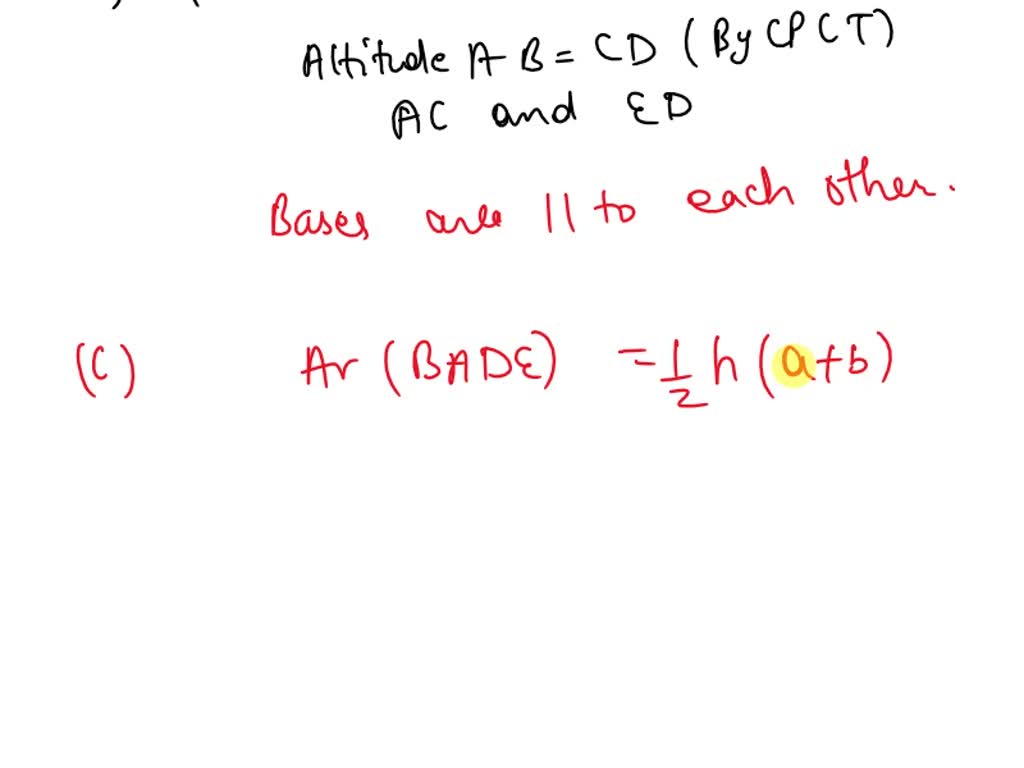 Altitude AB = CD (By CPCT)
AC and ED
Bases are || to each other.
(C) Ar (BADE) = 1/2 h (a+b)